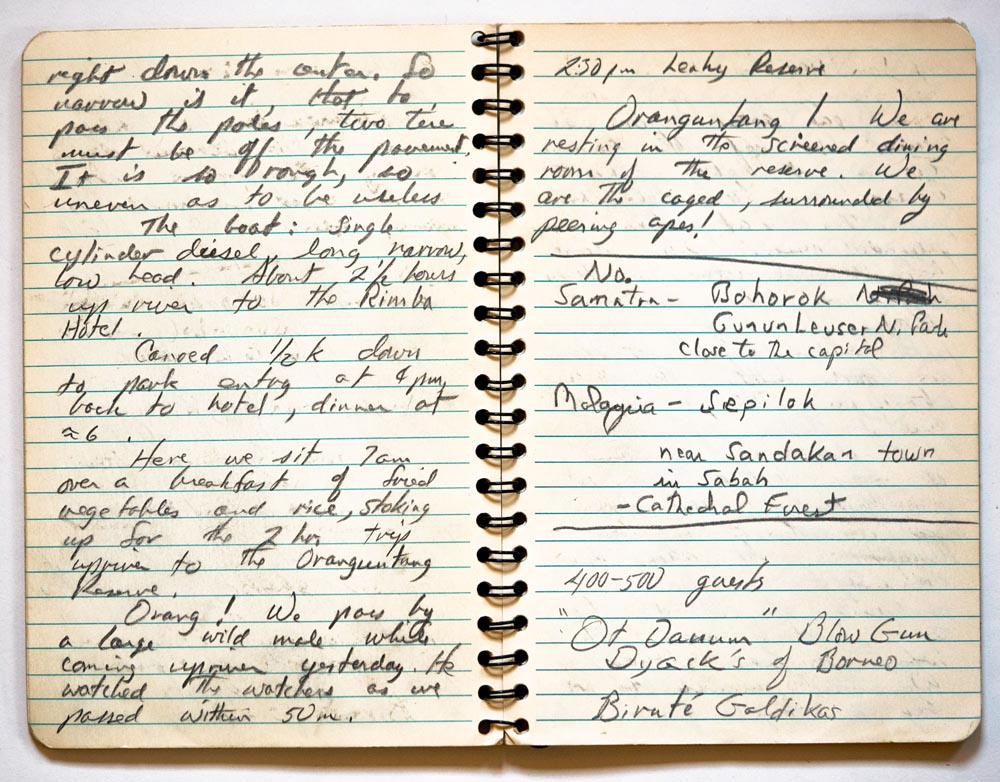 right down the center. So
narrow is it, that to
pass the poles, two tire
must be off the pavement.
It is so rough, so
uneven as to be useless
The boat: Single
cylinder diesel, long, narrow,
low head. About 2½ hours
up river to the Rimba
Hotel.
Canoed 1/2 k down
to park entry at 4 pm,
back to hotel, dinner at
≈6.
Here we sit 7am
over a breakfast of fried
vegetables and rice, stoking
up for the 2 hr trip
upriver to the Orangguntang
Reserve.
Orang! We pass by
a large wild male while
coming upriver yesterday. He
watched the watchers as we
passed within 50m.
2:30 pm Leaky Reserve.
Oranguntang! We are
resting in the screened dining
room of the reserve. We
are the caged, surrounded by
peering apes!
No.
Samatra - Bohorok
Gunun Leuser N. Park
close to the capitol
- Sepilok
near Sandakan town
in Sabah
- Cathedral Forest
400-500 guests
"Ot Danum" Blow Gun
Dyack's of Borneo
Biruté Galdikas